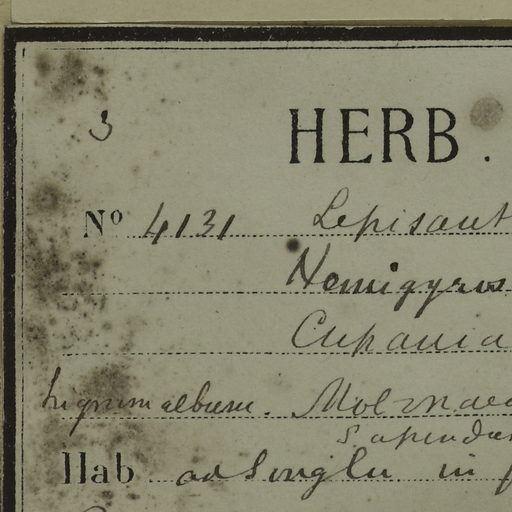 3
HERB.
Nº 4131 Lepisant
Hemigyros
Cupania
lignum album. Molinaea
Sapindac
Hab ad Songlu in